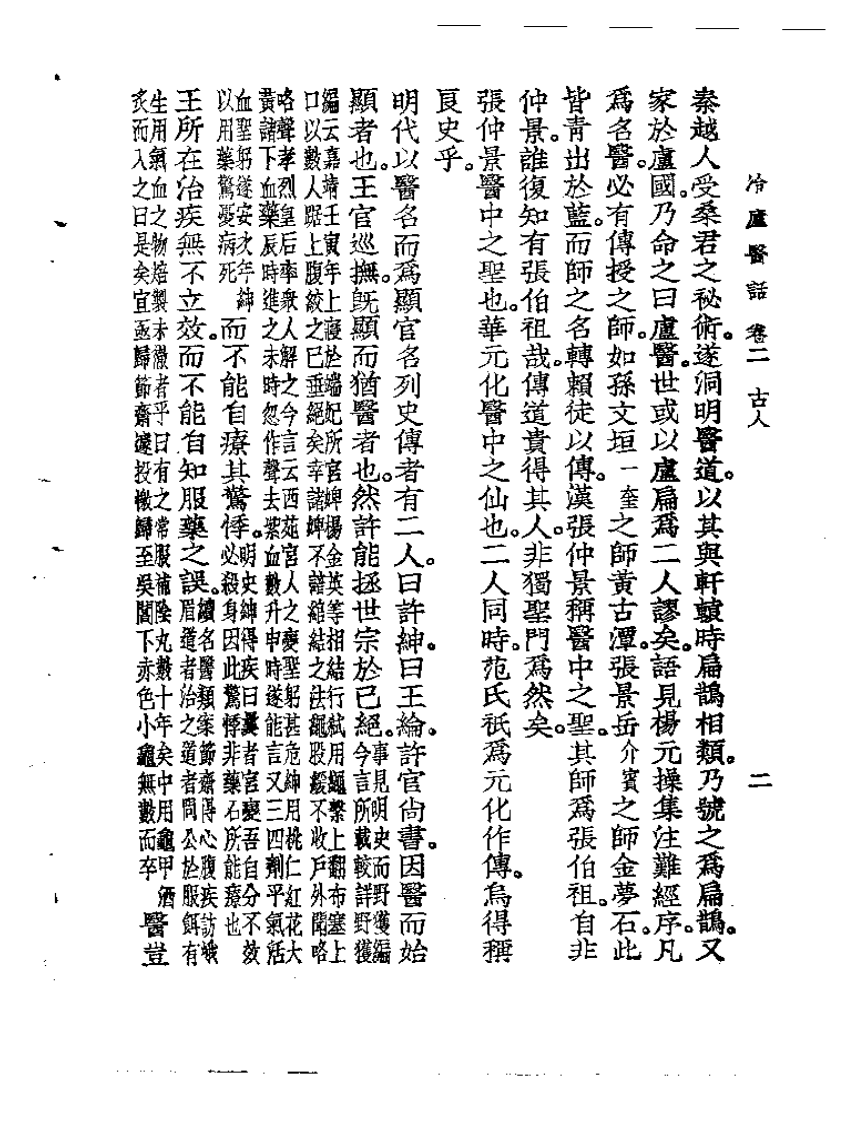 冷廬醫話 卷二 古人 二
秦越人受桑君之祕術。遂洞明醫道。以其與軒轅時扁鵲相類。乃號之爲扁鵲。又
家於盧國。乃命之曰盧醫。世或以盧扁爲二人。謬矣。語見楊元操集注難經序。凡
爲名醫。必有傳授之師。如孫文垣一奎之師黃古潭。張景岳介賓之師金夢石。此
皆靑出於藍。而師之名轉賴徒以傳。漢張仲景稱醫中之聖。其師爲張伯祖。自非
仲景。誰復知有張伯祖哉。傳道貴得其人。非獨聖門爲然矣。
張仲景醫中之聖也。華元化醫中之仙也。二人同時。范氏祇爲元化作傳。烏得稱
良史乎。
明代以醫名而爲顯官名列史傳者有二人。曰許紳。曰王綸。許官尙書。因醫而始
顯者也。王官巡撫。旣顯而猶醫者也。然許能拯世宗於已絕。事見明史而野獲編今言所載較詳野獲
編云嘉靖壬寅年上寢於端妃所宮婢楊金英等相結行弑用繩繫上翻布塞上
口以數人踞上腹絞之已垂絕矣幸諸婢不諳綰結之法繩股緩不收戶外聞咯
咯聲孝烈皇后率衆人解之今言云西苑宮人之變聖躬甚危紳用桃仁紅花大
黃諸下血藥辰時進之未時忽作聲去紫血數升申時遂能言又三四劑平氣活
血聖躬遂安次年紳以用藥驚憂病死而不能自療其驚悸。明史紳得疾曰曩者宮變吾自分不效必殺身因此驚悸非藥石所能療也
王所在治疾無不立效。而不能自知服藥之誤。續名醫類案節齋得心腹疾訪峨眉道者治之道者問公於服餌有
生用氣血之物焙製未徹者乎曰有之常服補陰丸數十年矣中用龜甲酒
炙而入之曰是矣宜亟歸節齋遽投檄歸至吳閶下赤色小龜無數而卒醫豈